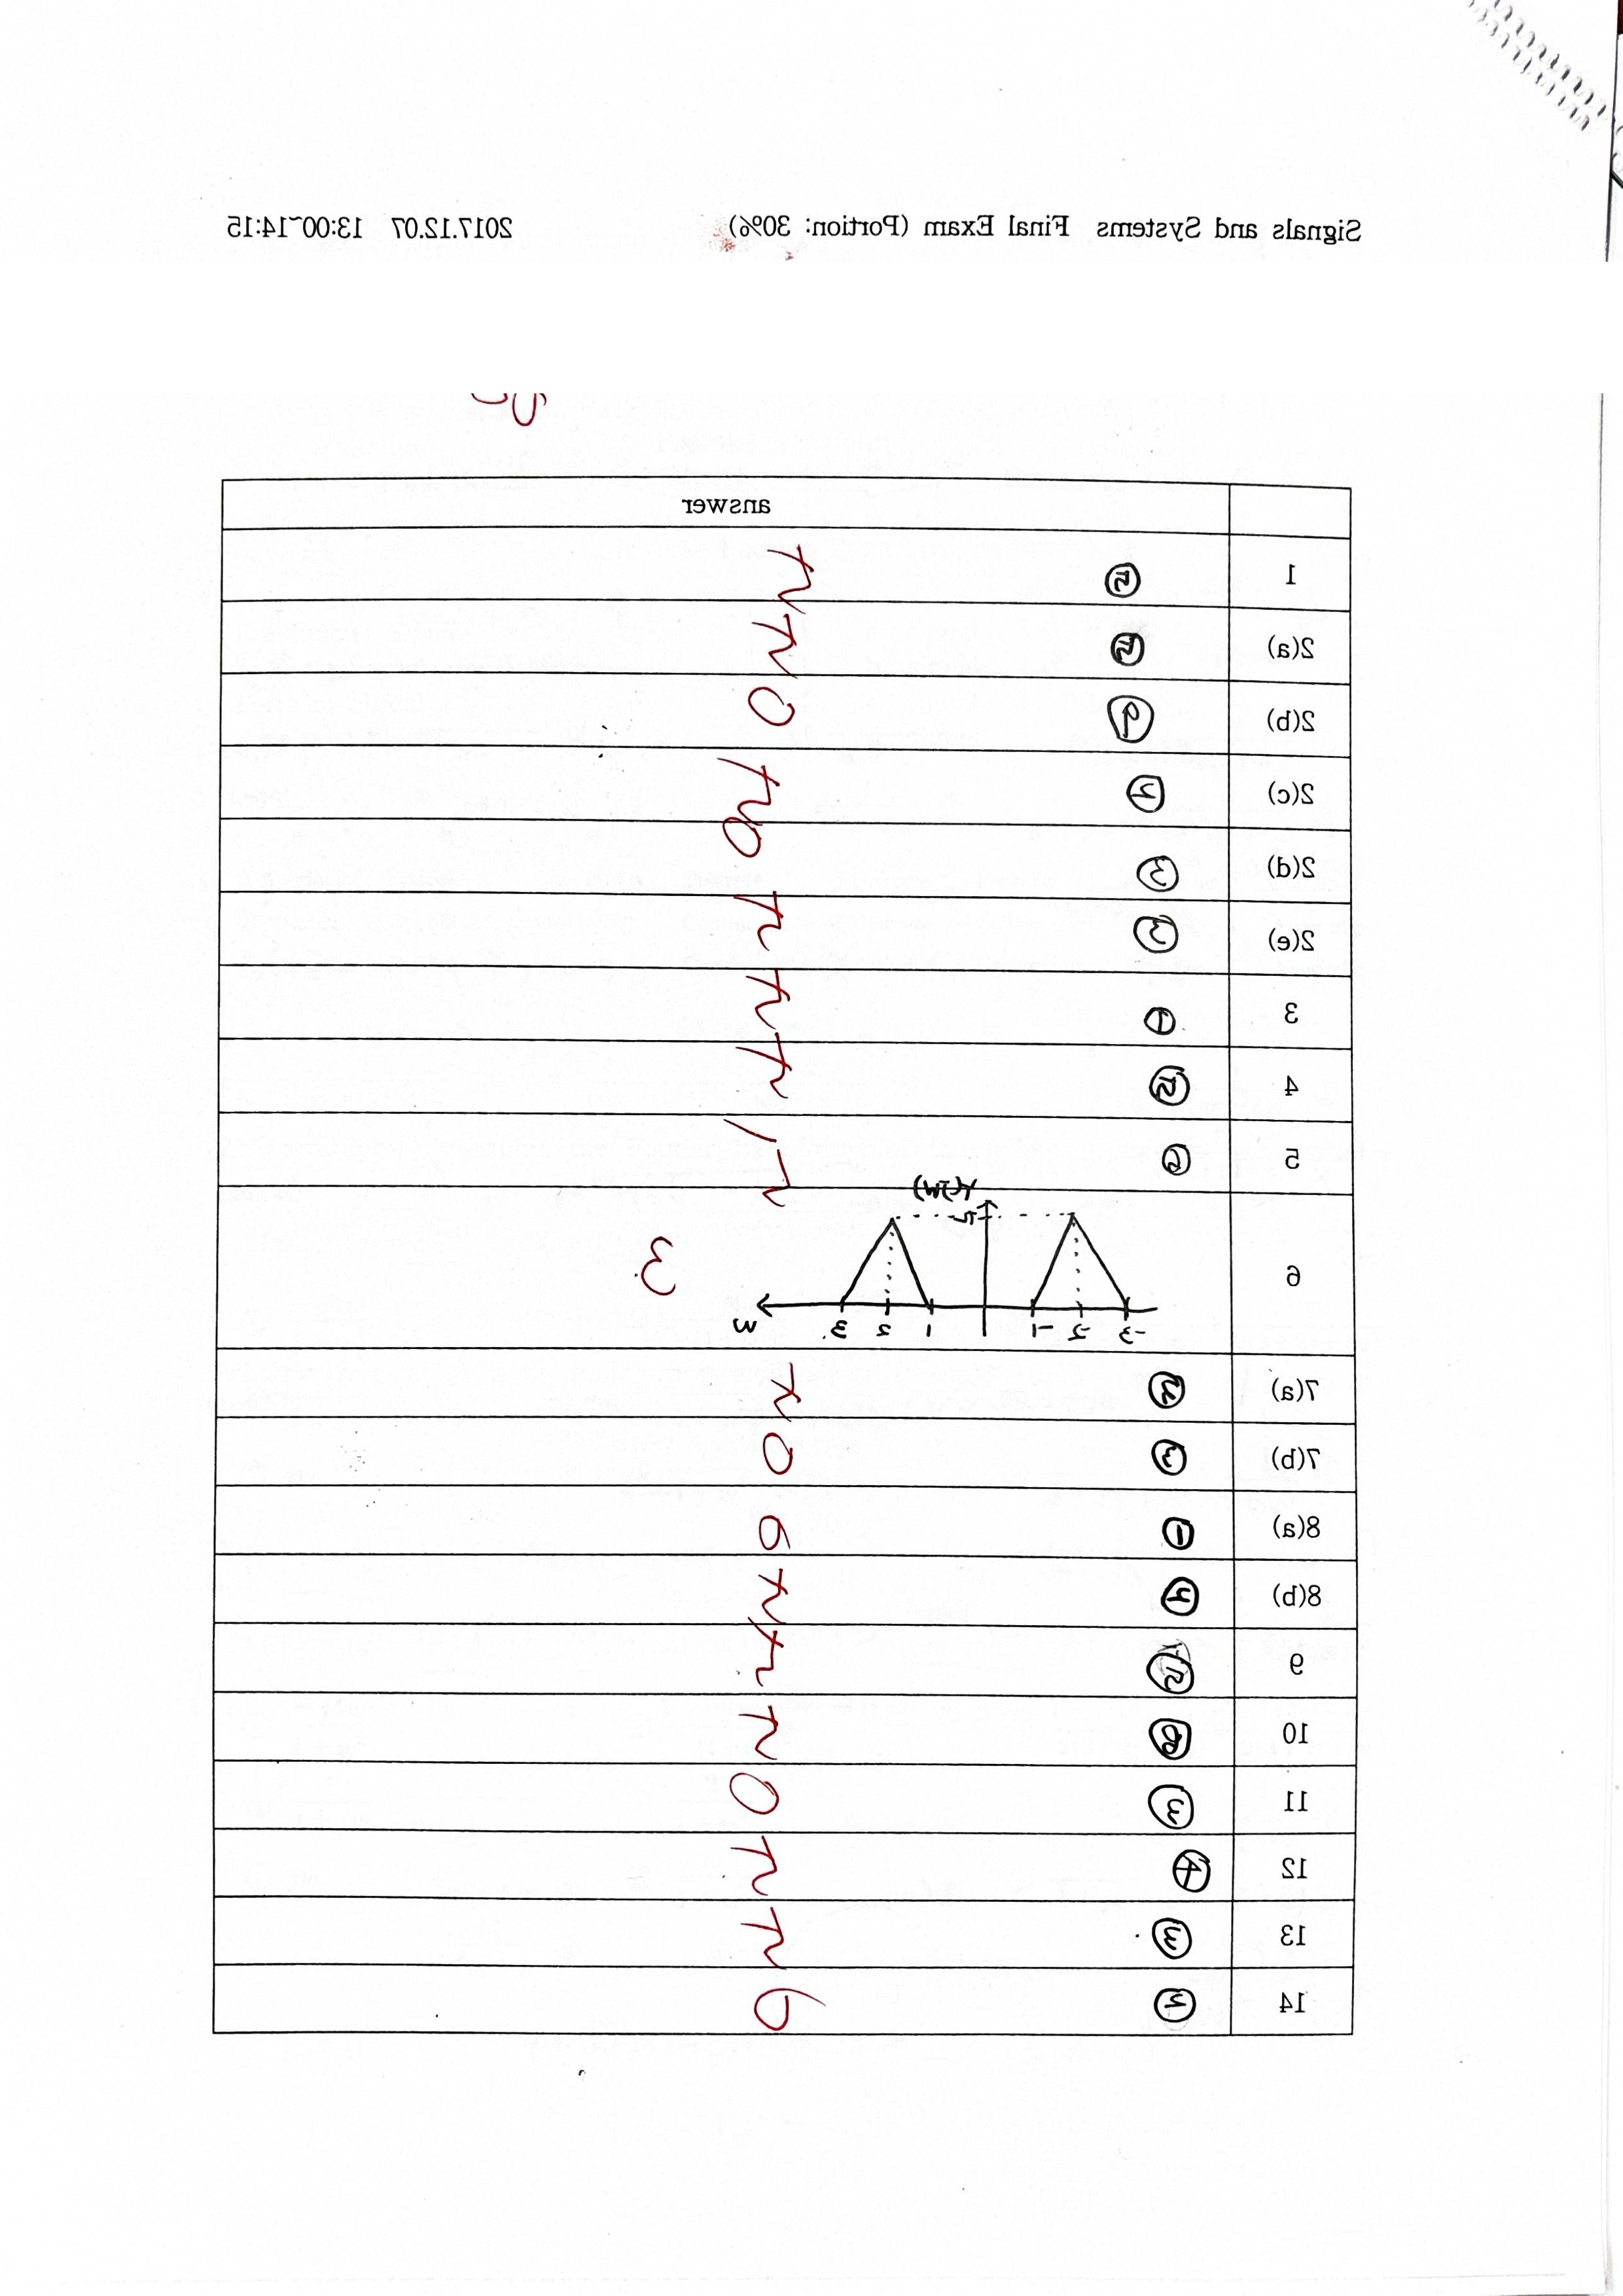 Signals and Systems Final Exam (Portion: 30%) 2017.12.07 13:00~14:15
answer
1 ⑤ 5
2(a) ⑤ 5
2(b) 0
2(c) 5
2(d) 0
2(e) 5
3 ① 5
4 ⑤ 5
5 5
6 Y(jw) -3 -2 -1 1 2 3 w 3
7(a) 5
7(b) ③ 0
8(a) ① 0
8(b) ④ 5
9 ⑤ 5
10 5
11 ③ 0
12 ④ 5
13 ③ 5
14 ② 0